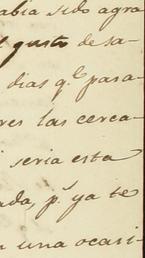 abia sido agra
gusto de sa-
dias q.e para-
res las cerca-
i seria esta
ada, p.s ya te
n una ocasi-